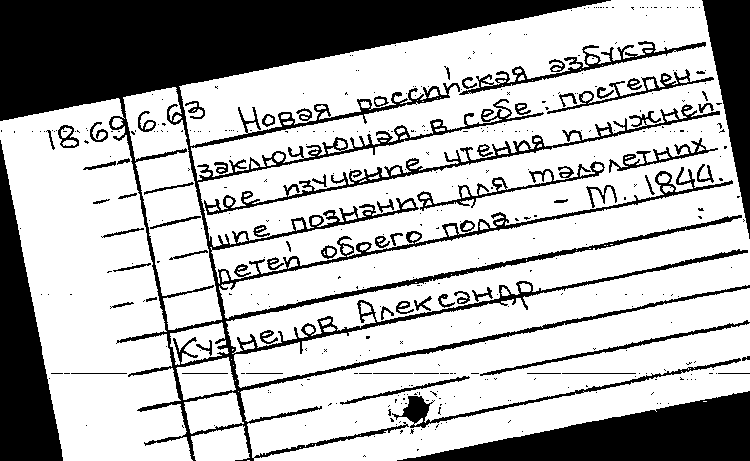 18.69.6.63 Новая российская азбука,
заключающая в себе: постепен-
ное изучение чтения и нужней-
шие познания для малолетних
детей обоего пола... - М., 1844.
Кузнецов, Александр